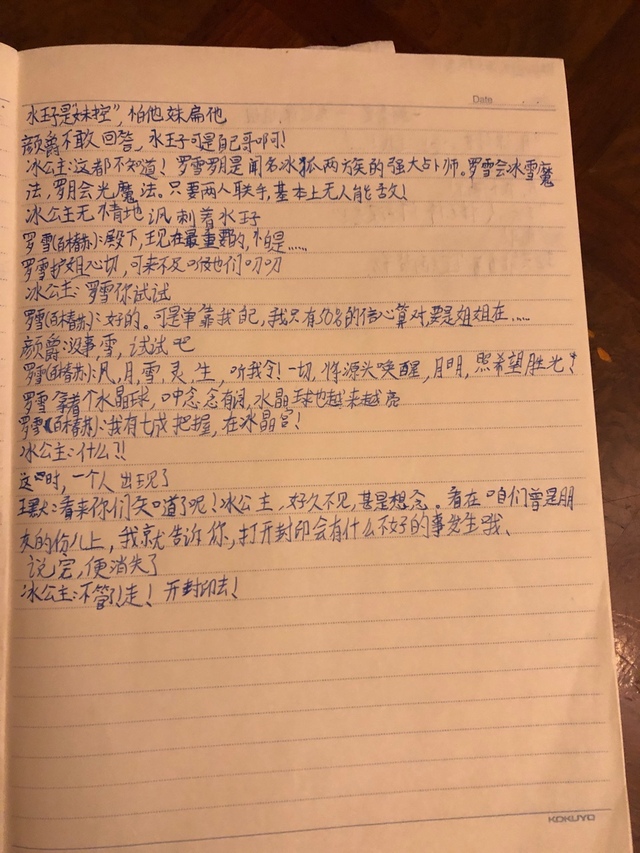 Date
水王子是"妹控",怕他妹扁他
颜爵不敢回答,水王子可是自己哥啊!
冰公主:这都不知道!罗雪罗月是闻名冰狐两族的强大占卜师。罗雪会冰雪魔
法,罗月会光魔法。只要两人联手,基本上无人能敌!
冰公主无情地讽刺着水王子
罗雪(百椿苏):殿下,现在最重要的,怕是……
罗雪护姐心切,可来不及
冰公主:罗雪你试试
罗雪(百椿苏):好的。可是单靠我自己,我只有50%的信心算对,要是姐姐在……
颜爵:没事,雪,试试吧
罗雪(百椿苏):风,月,雪,灵,生,听我令!一切,将源头唤醒,月明,照希望胜光!
罗雪拿着个水晶球,口中念念有词,水晶球也越来越亮
罗雪(百椿苏):我有七成把握,在冰晶宫!
冰公主:什么?!
这时,一个人出现了
王默:看来你们知道了呢!冰公主,好久不见,甚是想念。看在咱们曾是朋
友的份儿上,我就告诉你,打开封印会有什么不好的事发生哦、
说完,便消失了
冰公主:不管了,走!开封印去!
KOKUYO